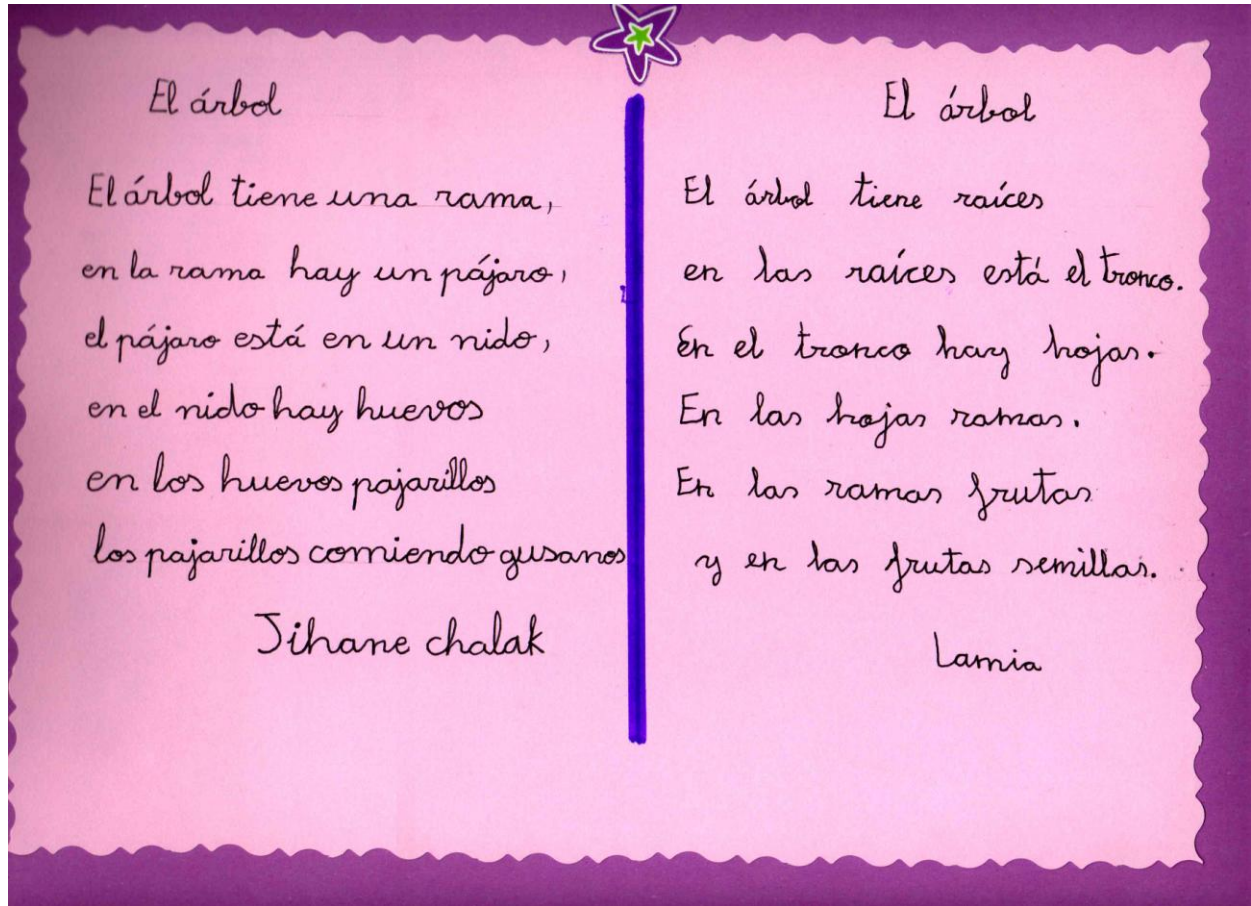 El árbol
El árbol tiene una rama,
en la rama hay un pájaro,
el pájaro está en un nido,
en el nido hay huevos
en los huevos pajarillos
los pajarillos comiendo gusanos
Jihane chalak
El árbol
El árbol tiene raíces
en las raíces está el tronco.
En el tronco hay hojas.
En las hojas ramas.
En las ramas frutas
y en las frutas semillas.
Lamia